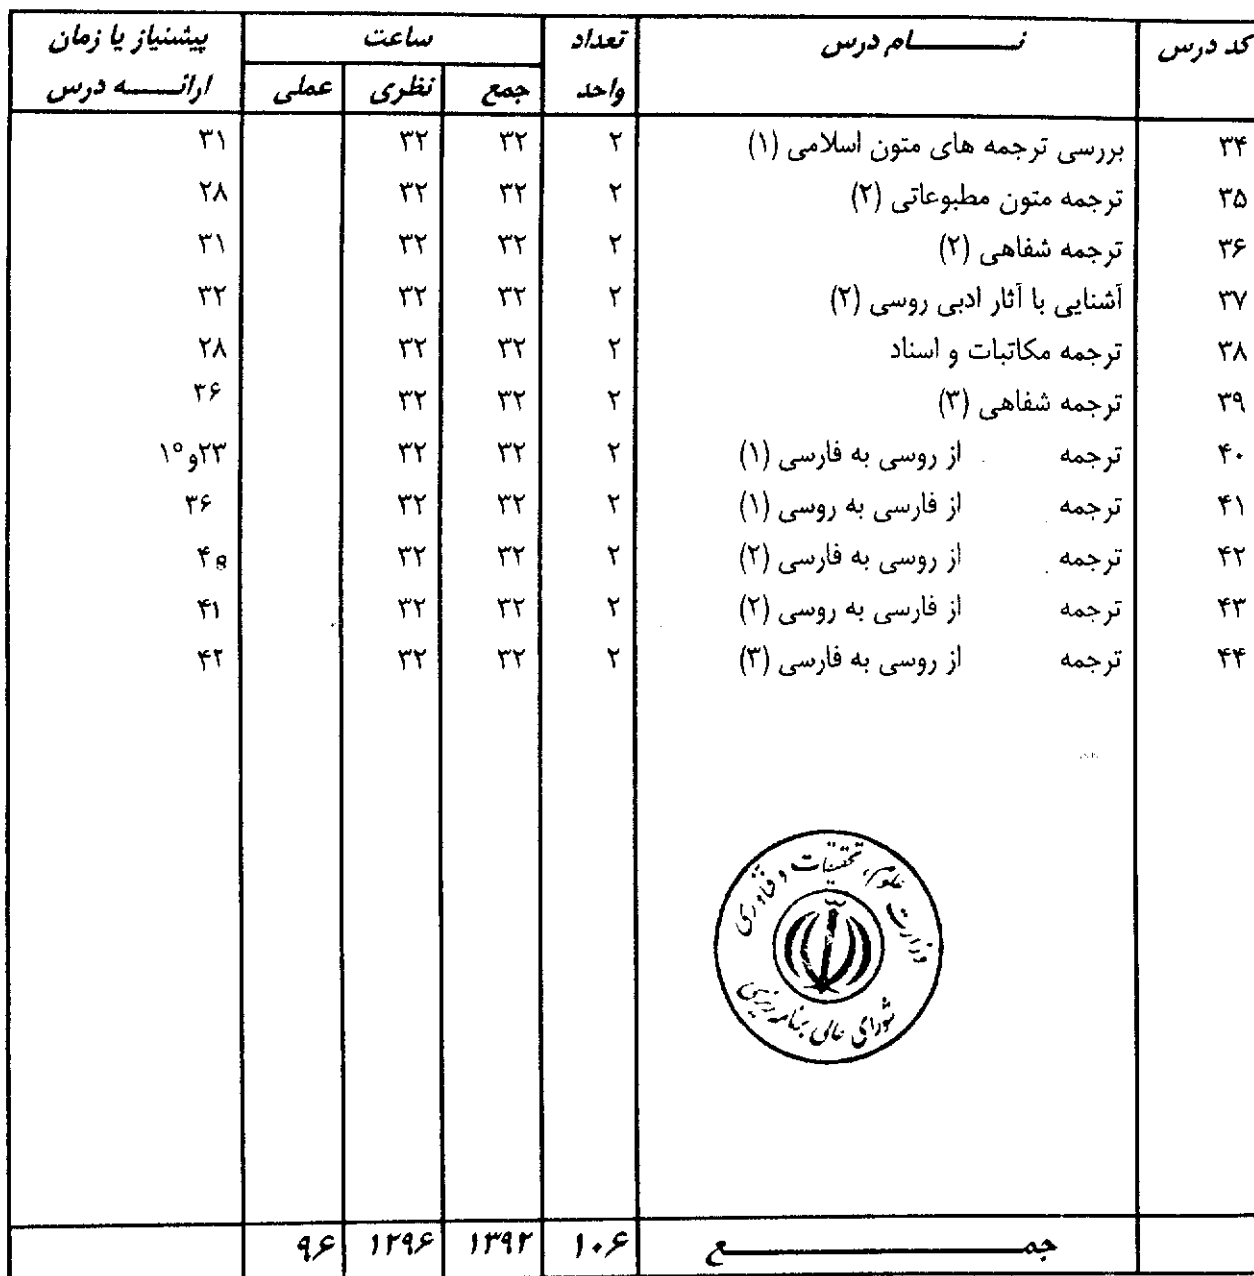 کد درس نـــام درس تعداد واحد ساعت پیشنیاز یا زمان ارائـــه درس
جمع نظری عملی
۳۴ بررسی ترجمه های متون اسلامی (۱) ۲ ۳۲ ۳۲ ۳۱
۳۵ ترجمه متون مطبوعاتی (۲) ۲ ۳۲ ۳۲ ۲۸
۳۶ ترجمه شفاهی (۲) ۲ ۳۲ ۳۲ ۳۱
۳۷ آشنایی با آثار ادبی روسی (۲) ۲ ۳۲ ۳۲ ۳۲
۳۸ ترجمه مکاتبات و اسناد ۲ ۳۲ ۳۲ ۲۸
۳۹ ترجمه شفاهی (۳) ۲ ۳۲ ۳۲ ۳۶
۴۰ ترجمه از روسی به فارسی (۱) ۲ ۳۲ ۳۲ ۲۳و۱۰
۴۱ ترجمه از فارسی به روسی (۱) ۲ ۳۲ ۳۲ ۳۶
۴۲ ترجمه از روسی به فارسی (۲) ۲ ۳۲ ۳۲
۴۳ ترجمه از فارسی به روسی (۲) ۲ ۳۲ ۳۲ ۴۱
۴۴ ترجمه از روسی به فارسی (۳) ۲ ۳۲ ۳۲ ۴۲
وزارت علوم، تحقیقات و فنآوری
شورای عالی برنامه ریزی
جمـــع ۱۰۶ ۱۳۹۲ ۱۲۹۶ ۹۶